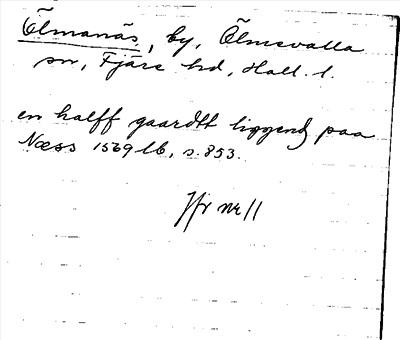 Ölmanäs, by, Ölmevalla
sn, Fjäre hd, Hall. l.
en halff gaardtt liggend paa
Næss 1569 lb, s. 853.
Jfr nr 11